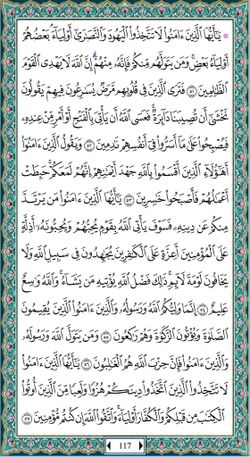 ۞ يَٰٓأَيُّهَا ٱلَّذِينَ ءَامَنُوا۟ لَا تَتَّخِذُوا۟ ٱلْيَهُودَ وَٱلنَّصَٰرَىٰٓ أَوْلِيَآءَ بَعْضُهُمْ
أَوْلِيَآءُ بَعْضٍ وَمَن يَتَوَلَّهُم مِّنكُمْ فَإِنَّهُۥ مِنْهُمْ إِنَّ ٱللَّهَ لَا يَهْدِى ٱلْقَوْمَ
ٱلظَّٰلِمِينَ ٥١ فَتَرَى ٱلَّذِينَ فِى قُلُوبِهِم مَّرَضٌ يُسَٰرِعُونَ فِيهِمْ يَقُولُونَ
نَخْشَىٰٓ أَن تُصِيبَنَا دَآئِرَةٌ فَعَسَى ٱللَّهُ أَن يَأْتِىَ بِٱلْفَتْحِ أَوْ أَمْرٍ مِّنْ عِندِهِۦ
فَيُصْبِحُوا۟ عَلَىٰ مَآ أَسَرُّوا۟ فِىٓ أَنفُسِهِمْ نَٰدِمِينَ ٥٢ وَيَقُولُ ٱلَّذِينَ ءَامَنُوٓا۟
أَهَٰٓؤُلَآءِ ٱلَّذِينَ أَقْسَمُوا۟ بِٱللَّهِ جَهْدَ أَيْمَٰنِهِمْ إِنَّهُمْ لَمَعَكُمْ حَبِطَتْ
أَعْمَٰلُهُمْ فَأَصْبَحُوا۟ خَٰسِرِينَ ٥٣ يَٰٓأَيُّهَا ٱلَّذِينَ ءَامَنُوا۟ مَن يَرْتَدَّ
مِنكُمْ عَن دِينِهِۦ فَسَوْفَ يَأْتِى ٱللَّهُ بِقَوْمٍ يُحِبُّهُمْ وَيُحِبُّونَهُۥٓ أَذِلَّةٍ
عَلَى ٱلْمُؤْمِنِينَ أَعِزَّةٍ عَلَى ٱلْكَٰفِرِينَ يُجَٰهِدُونَ فِى سَبِيلِ ٱللَّهِ وَلَا
يَخَافُونَ لَوْمَةَ لَآئِمٍ ذَٰلِكَ فَضْلُ ٱللَّهِ يُؤْتِيهِ مَن يَشَآءُ وَٱللَّهُ وَٰسِعٌ
عَلِيمٌ ٥٤ إِنَّمَا وَلِيُّكُمُ ٱللَّهُ وَرَسُولُهُۥ وَٱلَّذِينَ ءَامَنُوا۟ ٱلَّذِينَ يُقِيمُونَ
ٱلصَّلَوٰةَ وَيُؤْتُونَ ٱلزَّكَوٰةَ وَهُمْ رَٰكِعُونَ ٥٥ وَمَن يَتَوَلَّ ٱللَّهَ وَرَسُولَهُۥ
وَٱلَّذِينَ ءَامَنُوا۟ فَإِنَّ حِزْبَ ٱللَّهِ هُمُ ٱلْغَٰلِبُونَ ٥٦ يَٰٓأَيُّهَا ٱلَّذِينَ ءَامَنُوا۟
لَا تَتَّخِذُوا۟ ٱلَّذِينَ ٱتَّخَذُوا۟ دِينَكُمْ هُزُوًا وَلَعِبًا مِّنَ ٱلَّذِينَ أُوتُوا۟
ٱلْكِتَٰبَ مِن قَبْلِكُمْ وَٱلْكُفَّارَ أَوْلِيَآءَ وَٱتَّقُوا۟ ٱللَّهَ إِن كُنتُم مُّؤْمِنِينَ ٥٧
117